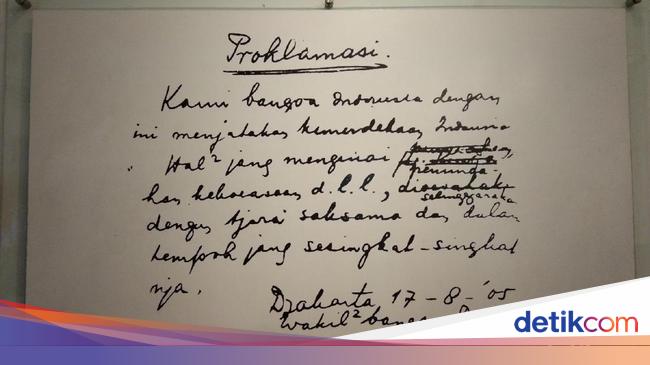 Proklamasi.
Kami bangsa Indonesia dengan
ini menjatakan kemerdekaan Indonesia
Hal² jang mengenai
pemindahan
kekoeasaan d.l.l.,
diselenggarakan
dengan tjara saksama dan dalam
tempoh jang sesingkat-singkat
nja.
Djakarta, 17-8-'05
Wakil² bangsa
detikcom